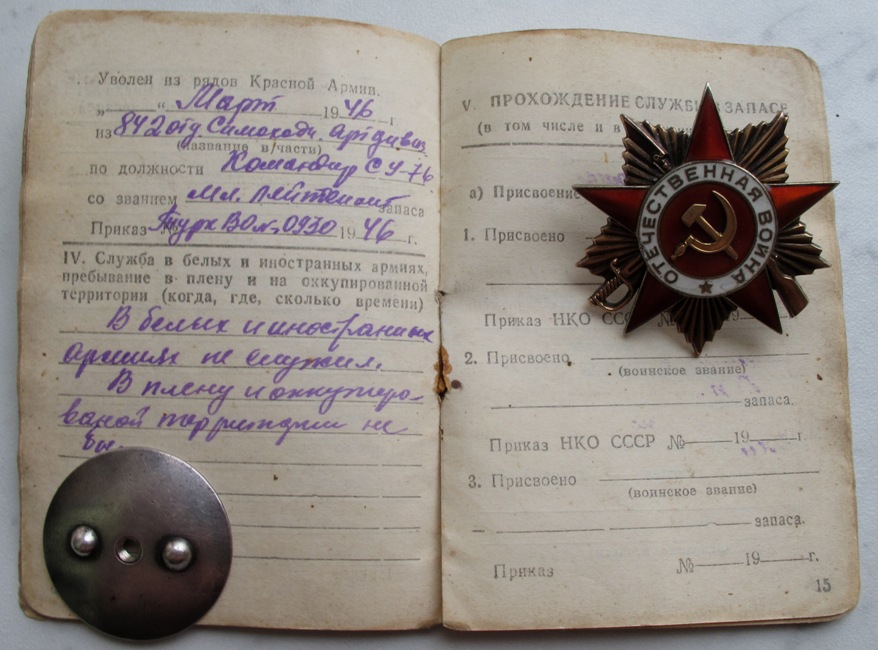 Уволен из рядов Красной Армии.
„ “ Март 1946 г
из 842 отд Самоходн. артдивиз.
(название в/части)
по должности Командир СУ-76
со званием Мл. лейтенант запаса
Приказ ТуркВО № 0930 1946 г.
IV. Служба в белых и иностранных армиях,
пребывание в плену и на оккупированной
территории (когда, где, сколько времени)
В белых и иностранных
армиях не служил.
В плену и оккупиро-
ваной территории не
V. ПРОХОЖДЕНИЕ СЛУЖБЫ В ЗАПАСЕ
(в том числе и в
а) Присвоение
1. Присвоено
Приказ НКО СССР № 19
2. Присвоено
(воинское звание)
запаса.
Приказ НКО СССР № 19 г.
3. Присвоено
(воинское звание)
запаса.
Приказ № 19 г.
15
ОТЕЧЕСТВЕННАЯ ВОЙНА